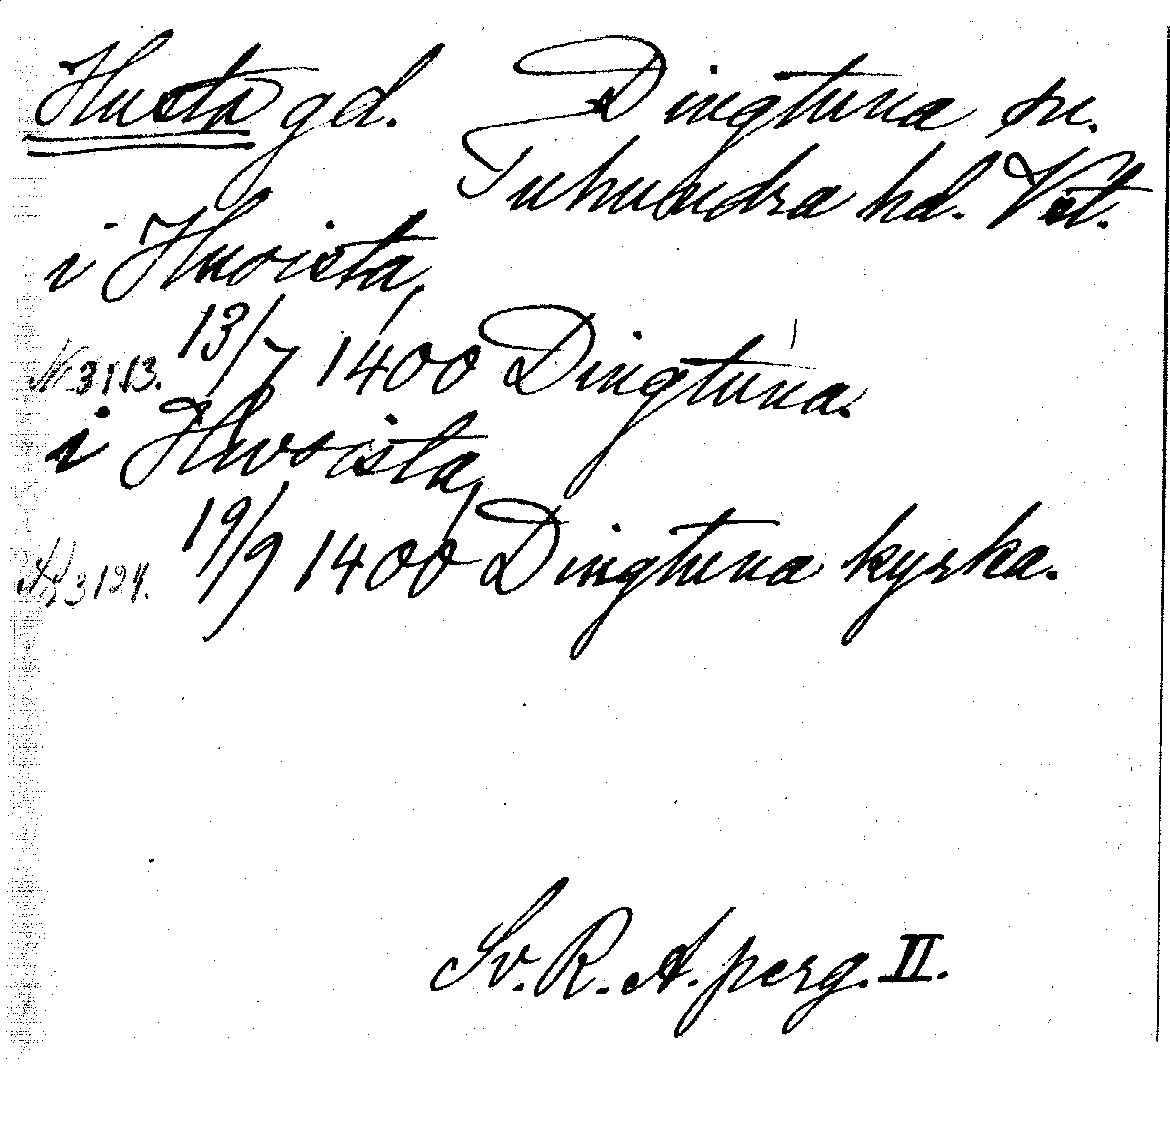 Husta gd. Dingtuna sn.
Tuhundra hd. Vstl.
i Hwoista,
N 3113. 13/7 1400 Dingtuna.
i Hwsista,
N 3124. 19/9 1400 Dingtuna kyrka.
Sv. R. A. perg. II.